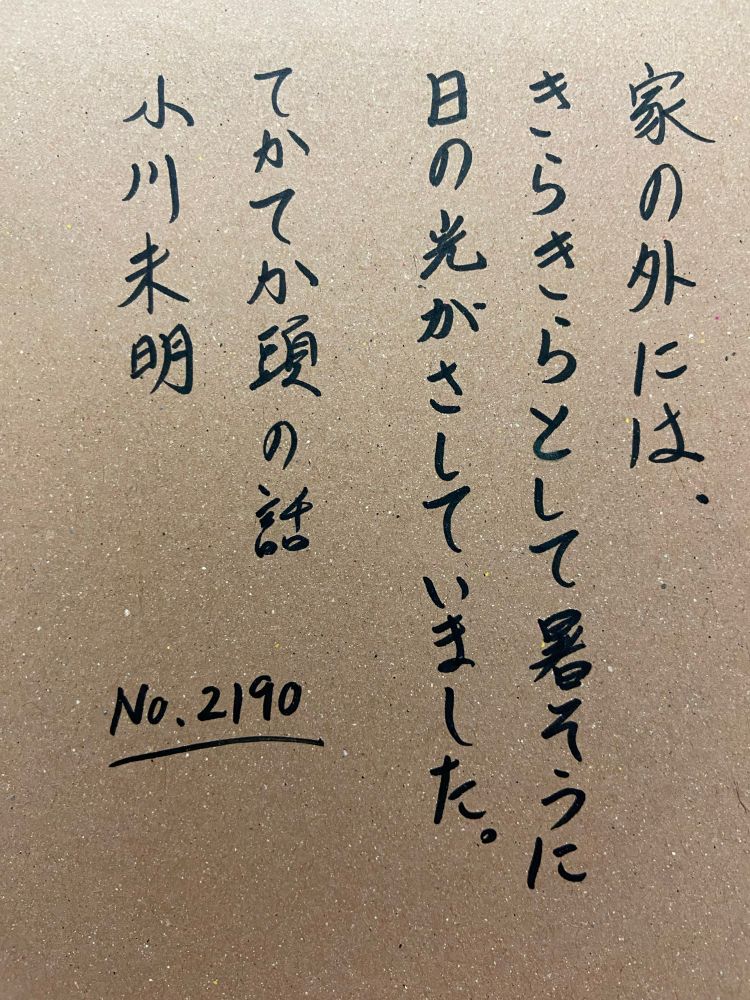 家の外には、
きらきらとして暑そうに
日の光がさしていました。
てかてか頭の話
小川未明
No.2190